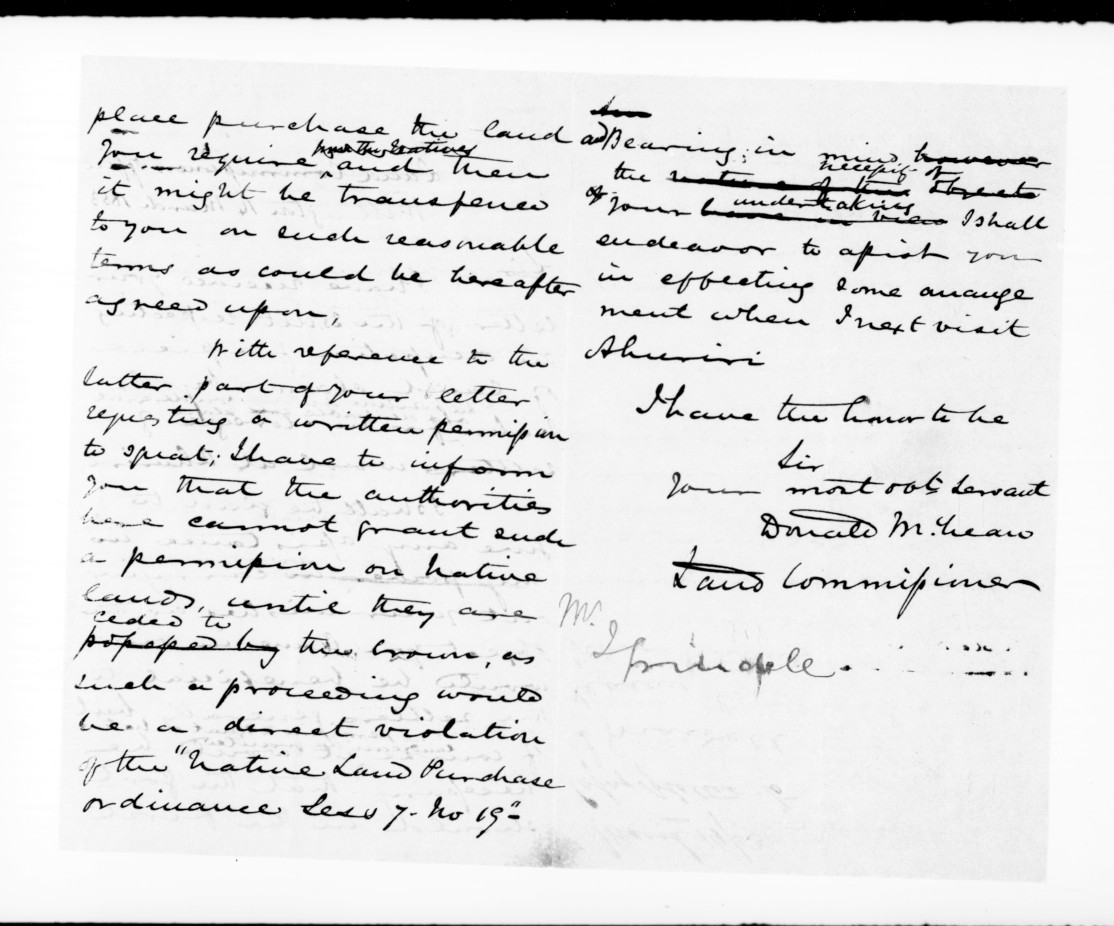 place purchase the land
you require from the Natives and then
it might be transfered
to you on such reasonable
terms as could be hereafter
agreed upon,
With reference to the
latter part of your letter
requesting a written permission
to squat; I have to inform
you that the authorities
here cannot grant such
a permission on Native
lands, until they are
ceded to
possessed by the crown, as
such a proceeding would
be a direct violation
of the "Native Land Purchase
ordinance Sess 7. No 19"
and Bearing in mind, however
necessity of
the nature of the objects
undertaking
of your have in view I shall
endeavor to assist you
in effecting some arrange
ment when I next visit
Ahuriri
I have the honor to be
Sir
Your most obt. Servant
Donald McLean
Land Commissioner
Mr.
J Grindell.